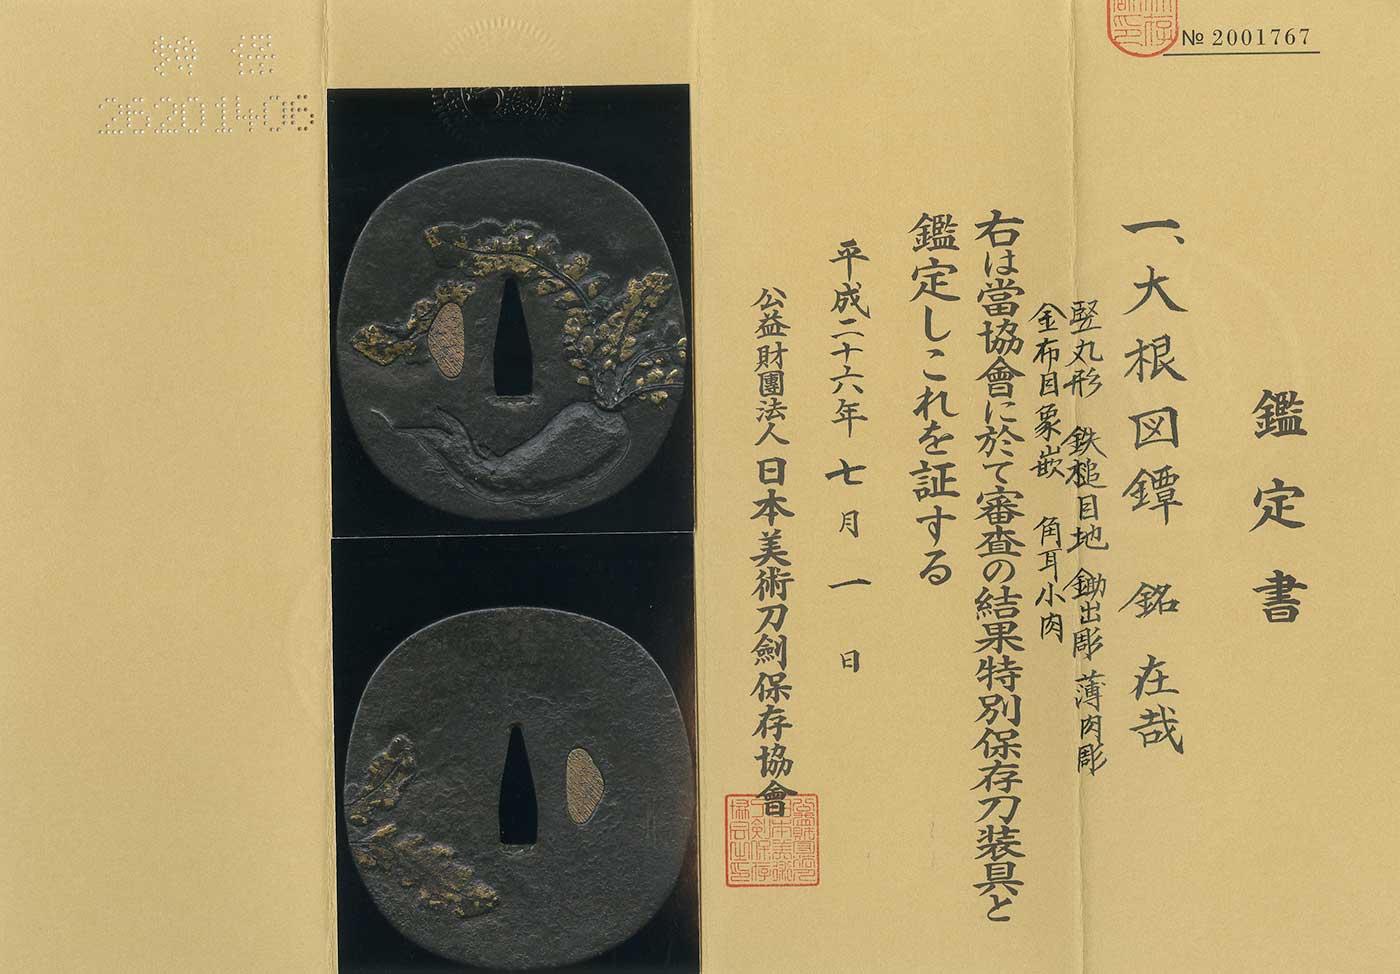 № 2001767
鑑定書
一、大根図鐔 銘 在哉
竪丸形 鉄槌目地 鋤出彫 薄肉彫
金布目象嵌 角耳小肉
右は當協會に於て審査の結果特別保存刀装具と
鑑定しこれを証する
平成二十六年七月一日
公益財團法人日本美術刀劍保存協會
26201406